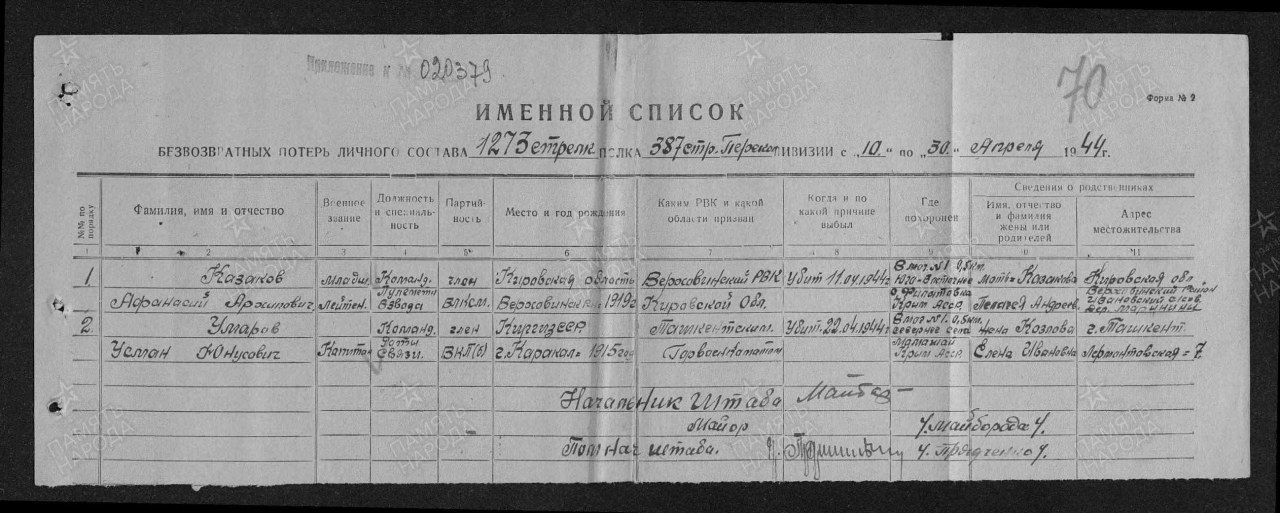 Приложение к № 020379
70
Форма № 2
ИМЕННОЙ СПИСОК
БЕЗВОЗВРАТНЫХ ПОТЕРЬ ЛИЧНОГО СОСТАВА 1273 стрелк ПОЛКА 387 стр. Перекоп ДИВИЗИИ с „10.“ по „30.“ Апреля 1944 г.
№№ по порядку
Фамилия, имя и отчество
Военное звание
Должность и специальность
Партийность
Место и год рождения
Каким РВК и какой области призван
Когда и по какой причине выбыл
Где похоронен
Сведения о родственниках
Имя, отчество и фамилия жены или родителей
Адрес местожительства
1 2 3 4 5 6 7 8 9 10 11
1. Казаков Младш. Команд. член Кировская область Верховинский РВК Убит 11.04.1944г В мог. №1 0,5 км. Мать-Казакова Кировской обл
Афанасий Архипович Лейтен. Пулеметн Взвода ВЛКСМ. Верховинский 1919г Кировской Обл. Крым АССР Пелагея Андреев.
2. Умаров Команд. член Киргизсср Ташкентским Убит. 22.04.1944г В мог. №1. 0,5 км. севернее села Жена Козлова г. Ташкент
Усман Юнусович Капитан Роты Связи. ВКП(б) г. Каракал - 1915 год Горвоенкоматом Мамашай Крым АССР Елена Ивановна Лермонтовская = 7.
Начальник Штаба
Майор /Майборода/.
Пом нач штаба.
ПАМЯТЬ НАРОДА